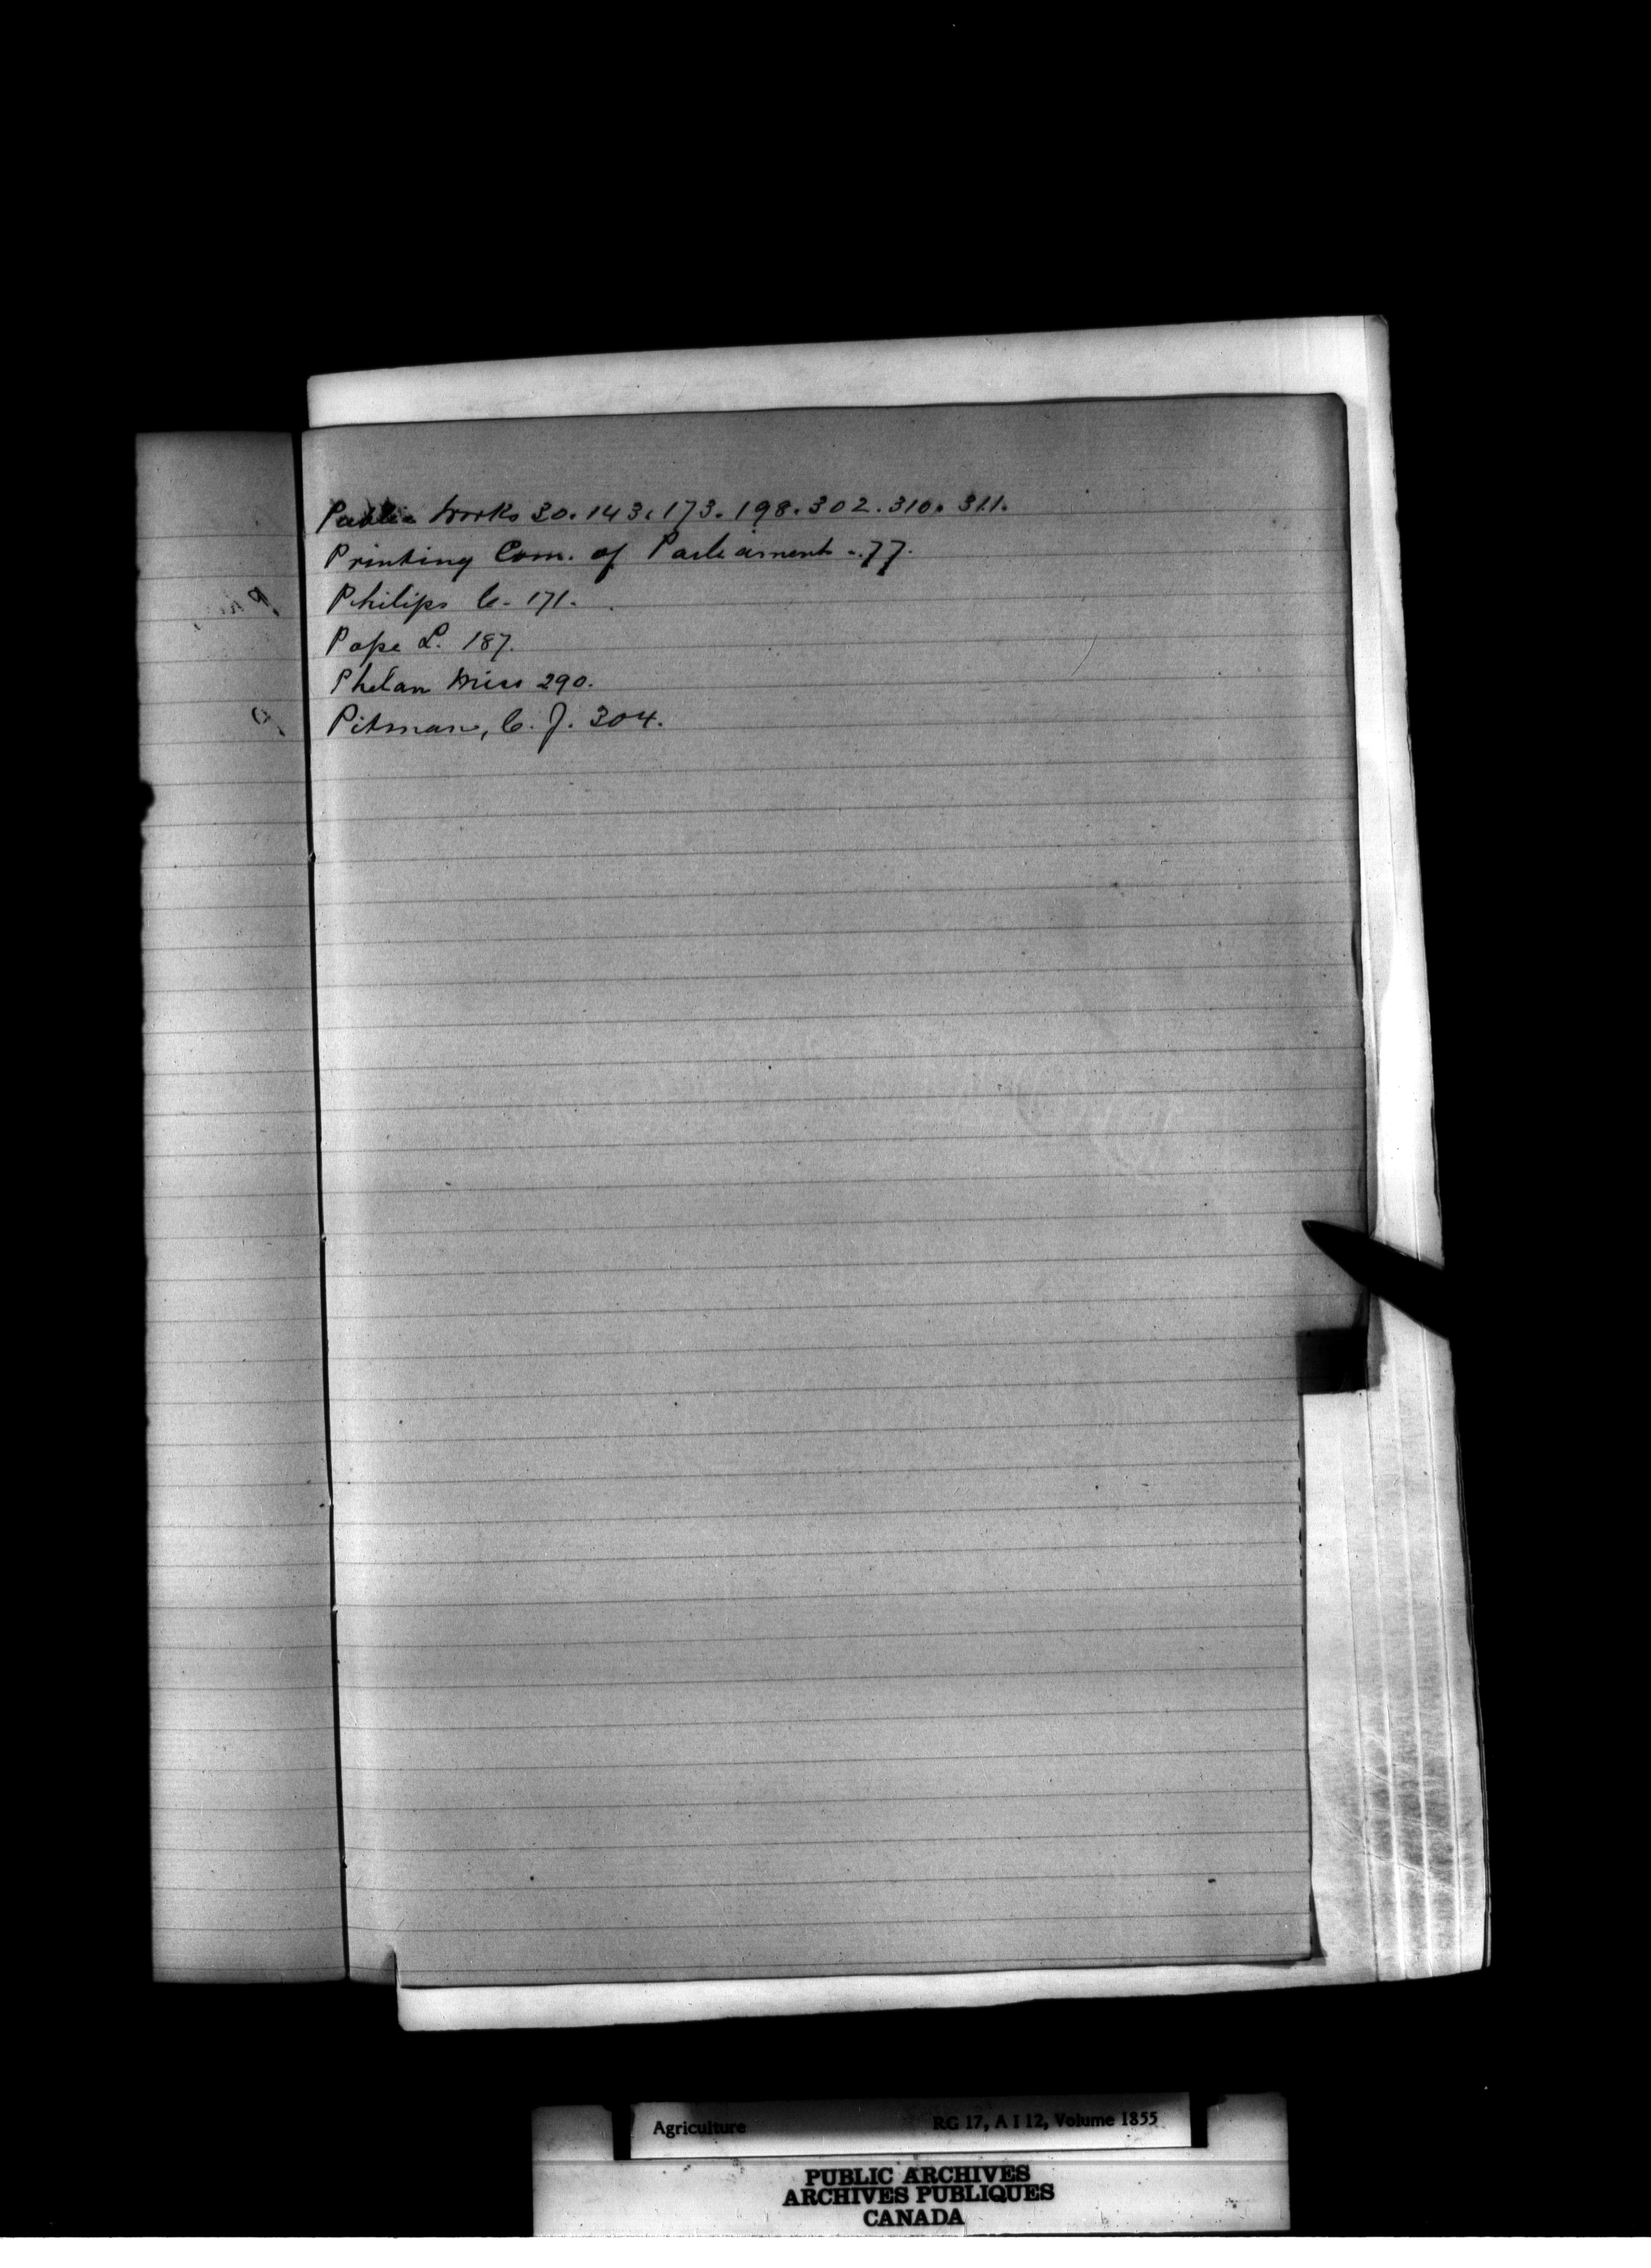 Public Works 30. 143. 173. 198. 302. 310. 311.
Printing Com. of Parliament -. 77.
Philips C. 171.
Pope L. 187.
Phelan Miss 290.
Pitman, C. J. 304.
Agriculture RG 17, A I 12, Volume 1855
PUBLIC ARCHIVES
ARCHIVES PUBLIQUES
CANADA